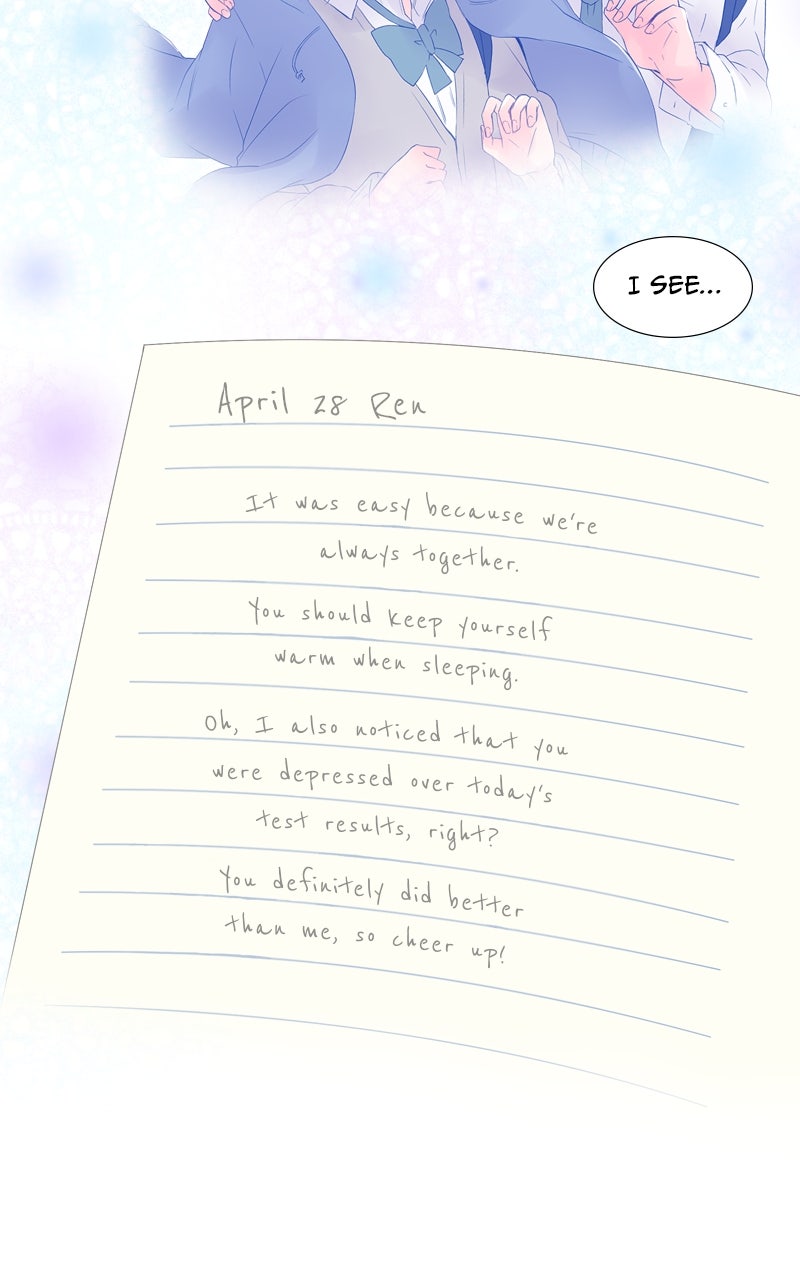 I SEE...
April 28 Ren
It was easy because we're
always together.
You should keep yourself
warm when sleeping.
Oh, I also noticed that you
were depressed over today's
test results, right?
You definitely did better
than me, so cheer up!